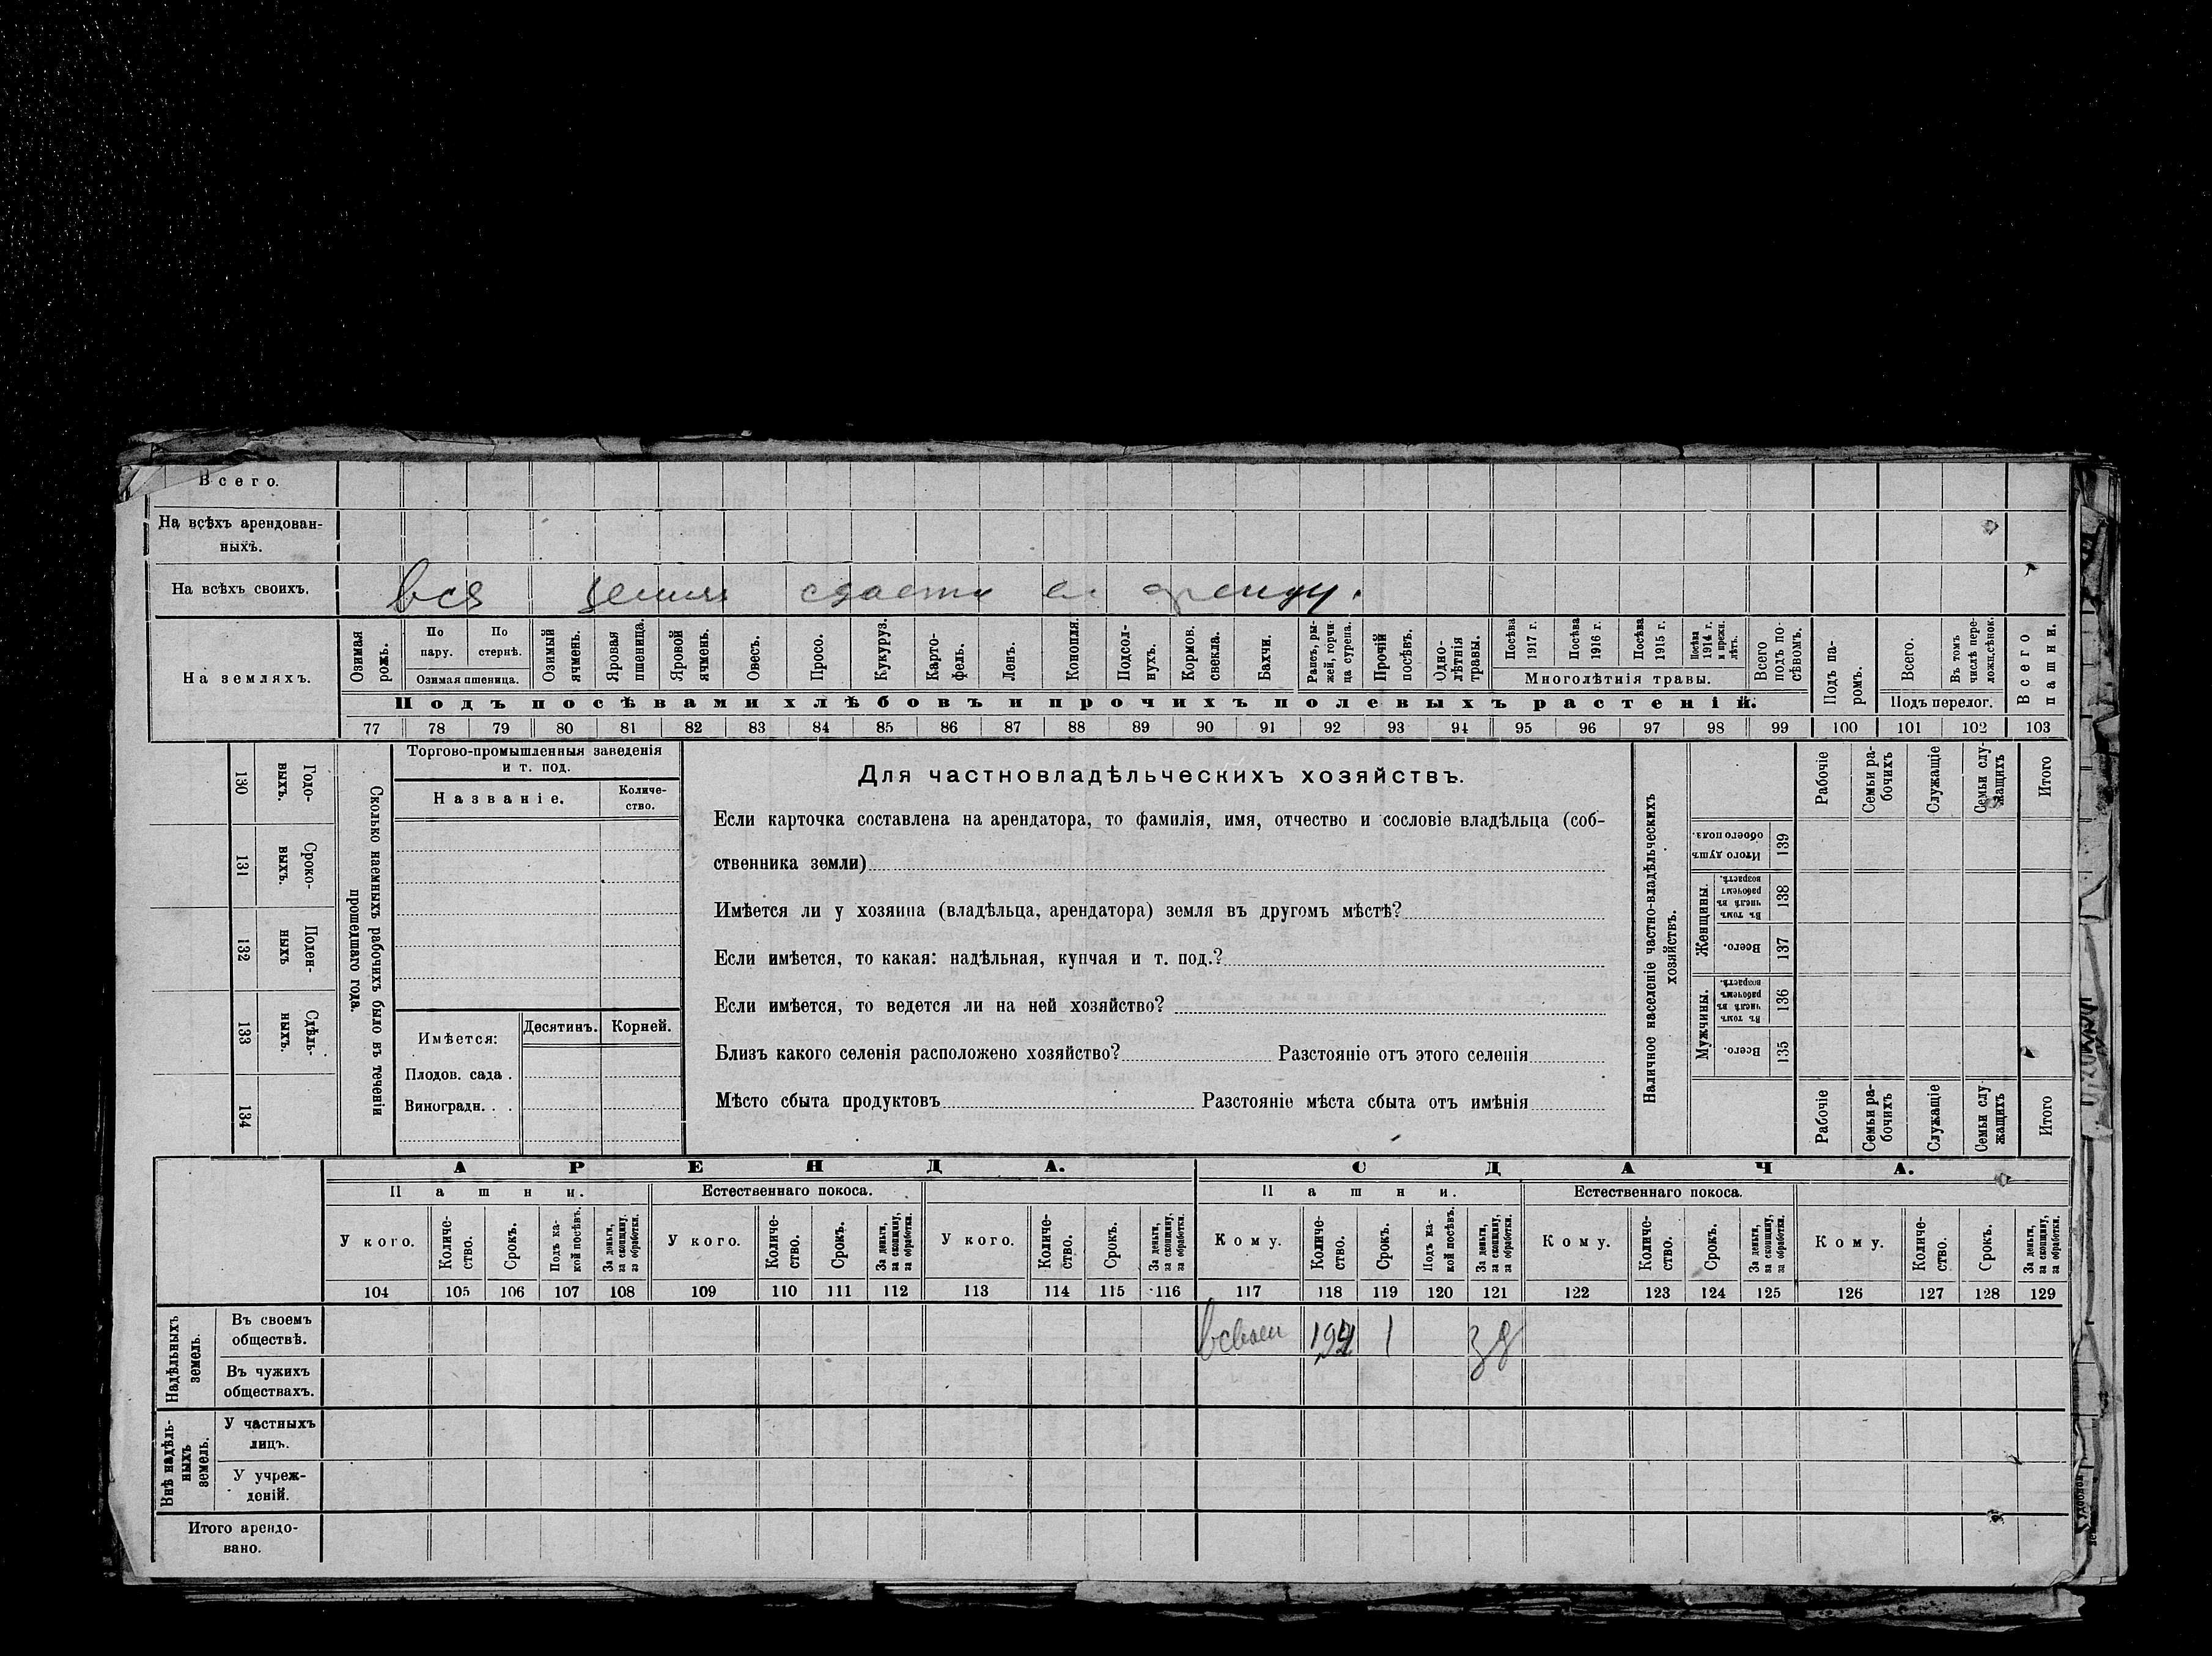 Всего.
На всѣхъ арендован-
ныхъ.
На всѣхъ своихъ.
вся земля сдаетъ в аренду.
На земляхъ.
Озимая рожь.
По пару.
По стернѣ.
Озимая пшеница.
Озимый ячмень.
Яровая пшеница.
Яровой ячмень.
Овесъ.
Просо.
Кукуруз.
Карто-
фель.
Ленъ.
Конопля.
Подсол-
нухъ.
Кормов.
свекла.
Бахчи.
Рапсъ, ры-
жей, горчи-
ца сурепа.
Прочій
посѣвъ.
Одно-
лѣтнія
травы.
Посѣва
1917 г.
Посѣва
1916 г.
Посѣва
1915 г.
Посѣва
1914 г.
и прежн.
лѣтъ.
Многолѣтнія травы.
Всего
подъ по-
сѣвомъ.
Подъ па-
ромъ.
Всего.
Въ томъ
числѣ пере-
ложн.сѣнок.
Подъ перелог.
Всего
пашни.
Подъ посѣвами хлѣбовъ и прочихъ полевыхъ растеній.
77 78 79 80 81 82 83 84 85 86 87 88 89 90 91 92 93 94 95 96 97 98 99 100 101 102 103
130
Годо-
выхъ.
131
Сроко-
выхъ.
132
Поден-
ныхъ
133
Сдѣль-
ныхъ.
134
Сколько наемныхъ рабочихъ было въ теченіи
прошедшаго года.
Торгово-промышленныя заведенія
и т. под.
Названіе.
Количе-
ство.
Имѣется:
Десятинъ.
Корней.
Плодов. сада .
Виноградн. . .
Для частновладѣльческихъ хозяйствъ.
Если карточка составлена на арендатора, то фамилія, имя, отчество и сословіе владѣльца (соб-
ственника земли)
Имѣется ли у хозяина (владѣльца, арендатора) земля въ другомъ мѣстѣ?
Если имѣется, то какая: надѣльная, купчая и т. под.?
Если имѣется, то ведется ли на ней хозяйство?
Близъ какого селенія расположено хозяйство? Разстояніе отъ этого селенія
Мѣсто сбыта продуктовъ Разстояніе мѣста сбыта отъ имѣнія
Наличное населеніе частно-владѣльческихъ
хозяйствъ.
Рабочіе
Семьи ра-
бочихъ
Служащіе
Семьи слу-
жащихъ
Итого
Итого душъ
обоего пола.
139
Женщины.
Въ томъ
числѣ въ
рабочемъ
возрастѣ.
138
Всего.
137
Мужчины.
Въ томъ
числѣ въ
рабочемъ
возрастѣ.
136
Всего.
135
Рабочіе
Семьи ра-
бочихъ
Служащіе
Семьи слу-
жащихъ
Итого
АРЕНДА.
СДАЧА.
Пашни.
Естественнаго покоса.
Пашни.
Естественнаго покоса.
У кого.
Количе-
ство.
Срокъ.
Подъ ка-
кой посѣвъ.
За деньги,
за скопщину,
за обработки.
У кого.
Количе-
ство.
Срокъ.
За деньги,
за скопщину,
за обработки.
У кого.
Количе-
ство.
Срокъ.
За деньги,
за скопщину,
за обработки.
Кому.
Количе-
ство.
Срокъ.
Подъ ка-
кой посѣвъ.
За деньги,
за скопщину,
за обработки.
Кому.
Количе-
ство.
Срокъ.
За деньги,
за скопщину,
за обработки.
Кому.
Количе-
ство.
Срокъ.
За деньги,
за скопщину,
за обработки.
104 105 106 107 108 109 110 111 112 113 114 115 116 117 118 119 120 121 122 123 124 125 126 127 128 129
Надѣльныхъ
земель.
Въ своемъ
обществѣ.
1
Въ чужихъ
обществахъ.
Внѣ надѣль-
ныхъ
земель.
У частныхъ
лицъ.
У учреж-
деній.
Итого арендо-
вано.